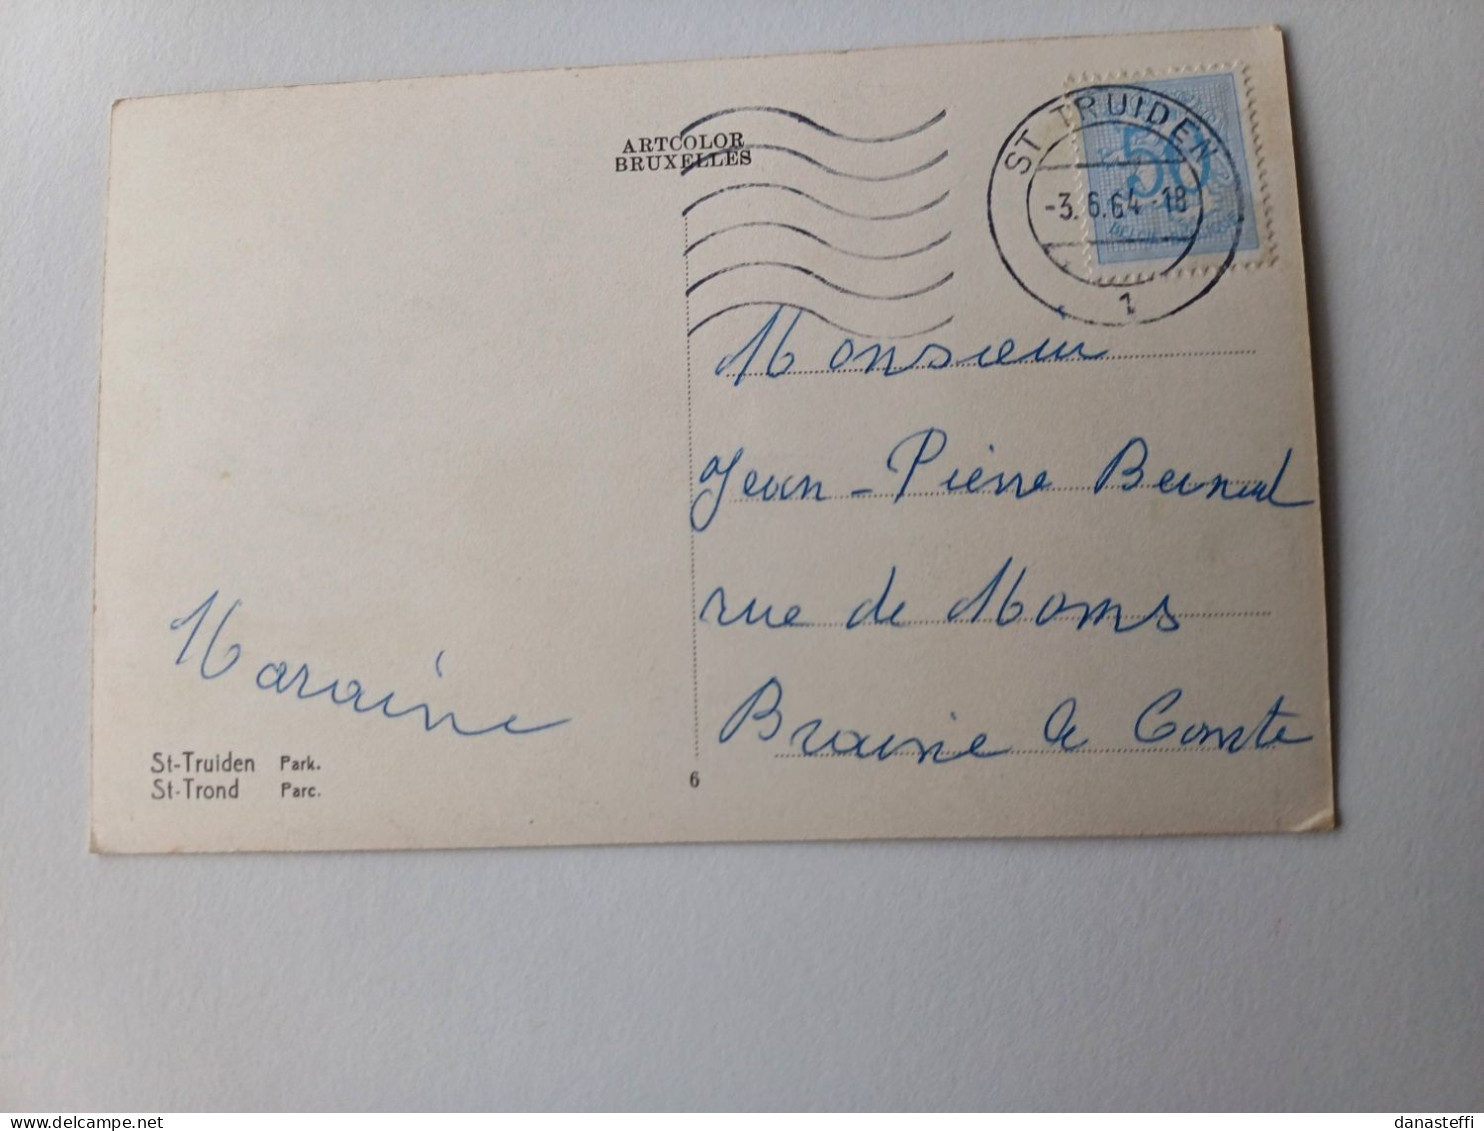 ARTCOLOR
BRUXELLES
ST TRUIDEN
-3.6.64-18
1
50
Monsieur
Jean-Pierre
rue de Mons
Braine le Comte
Maraine
St-Truiden Park.
St-Trond Parc.
6
delcampe.net
danasteffi